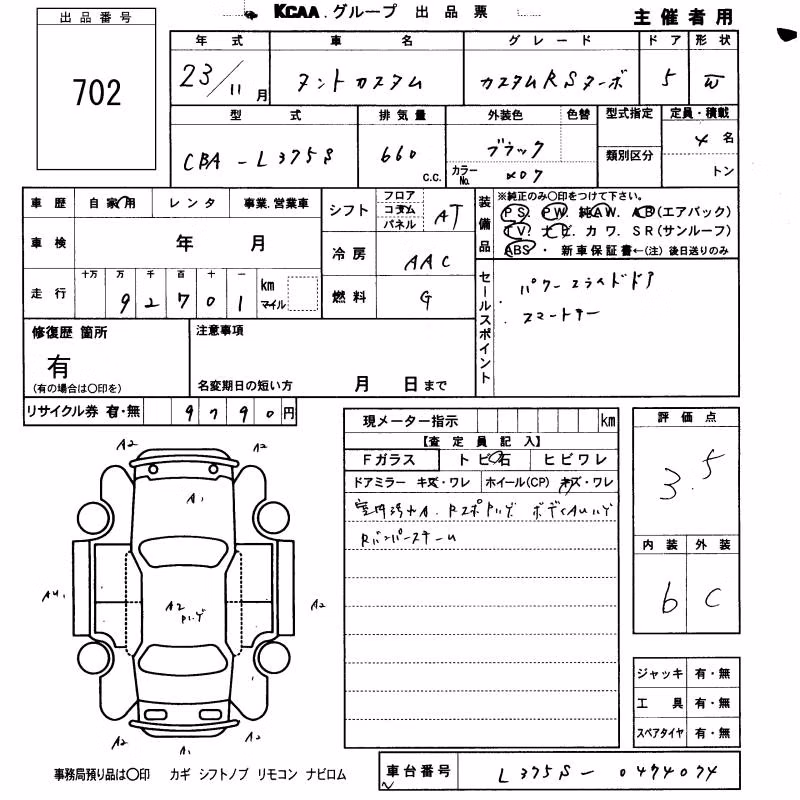 KCAA.グループ 出品票
主催者用
出品番号
702
年式 車名 グレード ドア 形状
23/11月 タントカスタム カスタムRSターボ 5 W
型式 排気量 外装色 色替 型式指定 定員・積載
CBA-L375S 660 C.C. ブラック 4名
カラーNo. X07 類別区分 トン
車歴 自家用 レンタ 事業.営業車
車検 年 月
走行 十万 万 千 百 十 一
92701 km マイル
シフト フロア コラム パネル AT
冷房 AAC
燃料 G
装備品 ※純正のみ〇印をつけて下さい。
PS. PW. 純AW. AB(エアバック)
TV. ナビ. カワ. SR(サンルーフ)
ABS・新車保証書←(注)後日送りのみ
セールスポイント
パワースライドドア
スマートキー
修復歴 箇所
有
(有の場合は〇印を)
注意事項
名変期日の短い方 月 日まで
リサイクル券 有・無 9790円
現メーター指示 km
【査定員記入】
Fガラス トビ石 ヒビワレ
ドアミラー キズ・ワレ ホイール(CP) キズ・ワレ
室内汚れA. Rスポイルハゲ ボディAUハゲ
Rバンパースチーム
評価点
3.5
内装 外装
6 C
ジャッキ 有・無
工具 有・無
スペアタイヤ 有・無
A2 A2
A1
A4 A2 A2
A2 A1 A2
事務局預り品は〇印 カギ シフトノブ リモコン ナビロム
車台番号 L375S-0474074